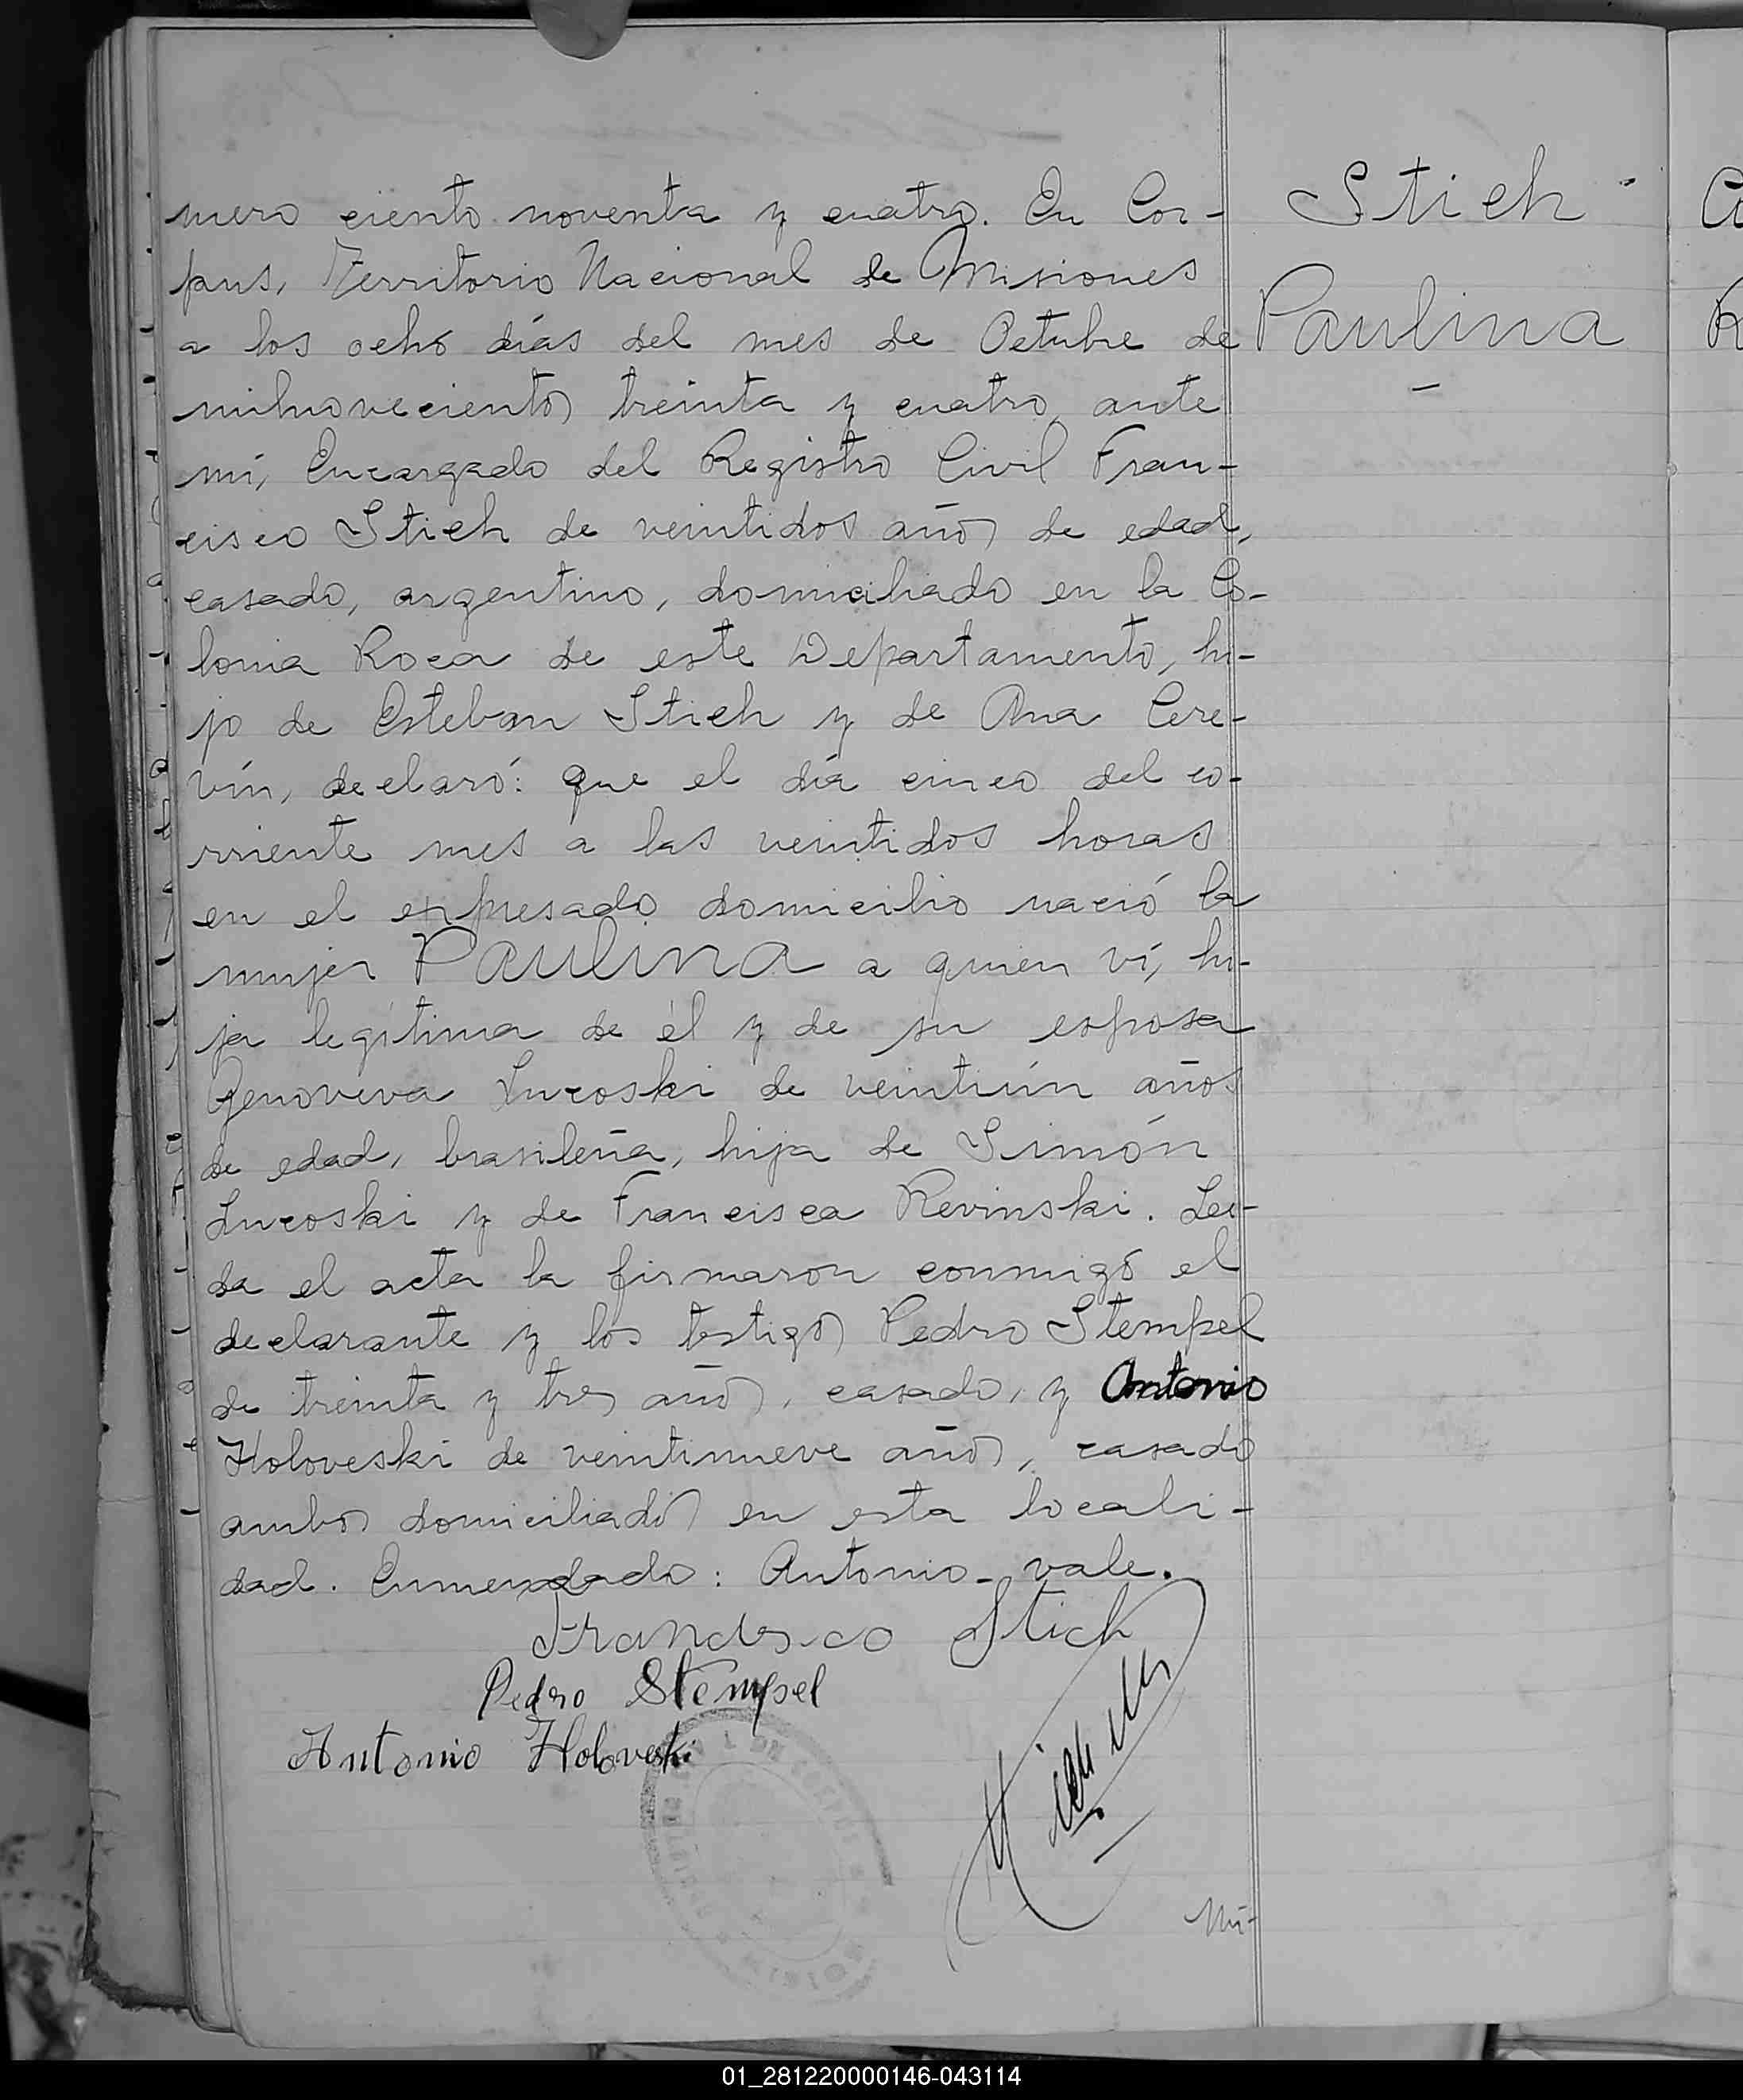 mero ciento noventa y cuatro. En Cor-
pus, Territorio Nacional de Misiones
a los ocho días del mes de Octubre de
milnovecientos treinta y cuatro, ante
mí, Encargado del Registro Civil Fran-
cisco Stich de veintidos años de edad,
casado, argentino, domiciliado en la Co-
lonia Roca de este Departamento, hi-
jo de Esteban Stich y de Ana Cere-
vín, declaró: que el día cinco del co-
rriente mes a las veintidos horas
en el expresado domicilio nació la
mujer Paulina a quien ví, hi-
ja legítima de él y de su esposa
Genoveva Lucoski de veintiún años
de edad, brasileña, hija de Simón
Lucoski y de Francisca Revinski. Leí-
da el acta la firmaron conmigo el
declarante y los testigos Pedro Stempel
de treinta y tres años, casado, y Antonio
Holoveski de veintinueve años, casado
ambos domiciliados en esta locali-
dad. Enmendado: Antonio - vale.
Stich
Paulina
Francisco Stich
Pedro Stempel
Antonio Holoveski
Nú-
01_281220000146-043114